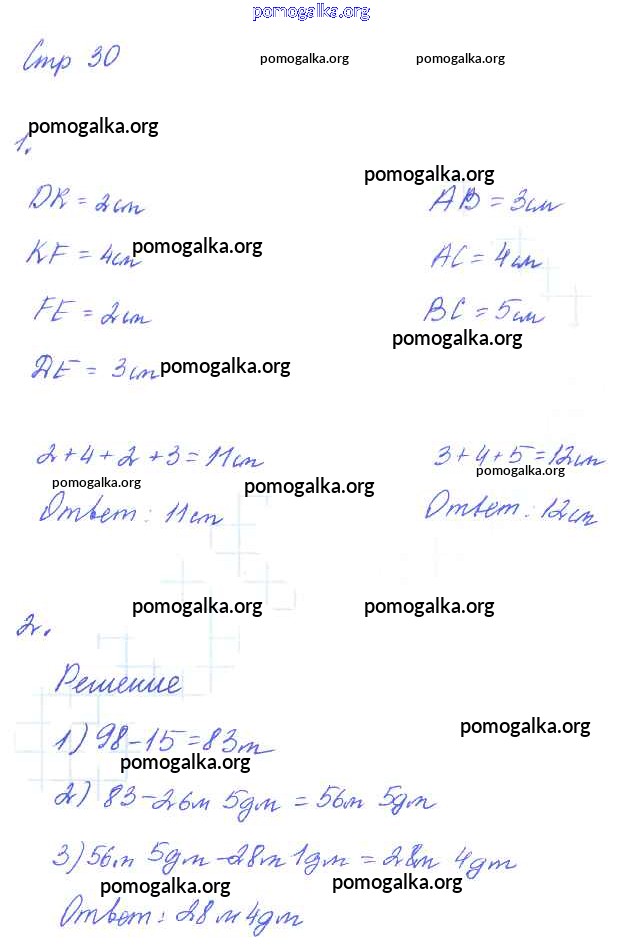 pomogalka.org
Стр 30 pomogalka.org pomogalka.org
pomogalka.org
1.
pomogalka.org
DK = 2см AB = 3см
KF = 4см pomogalka.org AC = 4см
FE = 2см BC = 5см
pomogalka.org
DE = 3см pomogalka.org
2+4+2+3=11см 3+4+5=12см
pomogalka.org pomogalka.org pomogalka.org
Ответ: 11см Ответ: 12см
pomogalka.org pomogalka.org
2.
Решение
pomogalka.org
1) 98-15=83м
pomogalka.org
2) 83-26м 5дм = 56м 5дм
3) 56м 5дм-28м 1дм = 28м 4дм
pomogalka.org pomogalka.org
Ответ: 28м 4дм